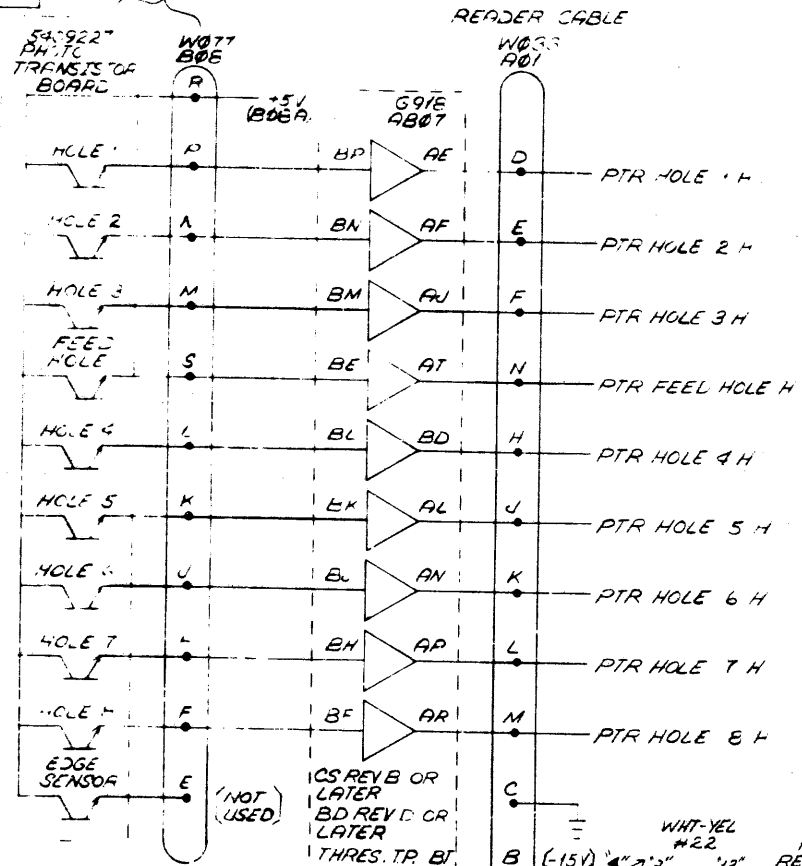 READER CABLE
W033
A01
PHOTO
TRANSISTOR
BOARD
W077
B08
R
+5V
(B08A
AB07
HOLE
P
BP
AE
D
PTR HOLE H
HOLE 2
N
BN
AF
E
PTR HOLE 2 H
HOLE 3
M
BM
AJ
F
PTR HOLE 3 H
FEED
HOLE
S
BE
AT
N
PTR FEED HOLE H
HOLE 4
L
BL
BD
H
PTR HOLE 4 H
HOLE 5
K
BK
AL
J
PTR HOLE 5 H
HOLE
J
AN
K
PTR HOLE 6 H
HOLE 7
BH
AP
L
PTR HOLE 7 H
HOLE
F
BF
AR
M
PTR HOLE 8 H
EDGE
SENSOR
E
(NOT
USED)
CS REV B OR
LATER
BD REV D OR
LATER
THRES. TP. BT
C
B
(-15V)
WHT-YEL
#22